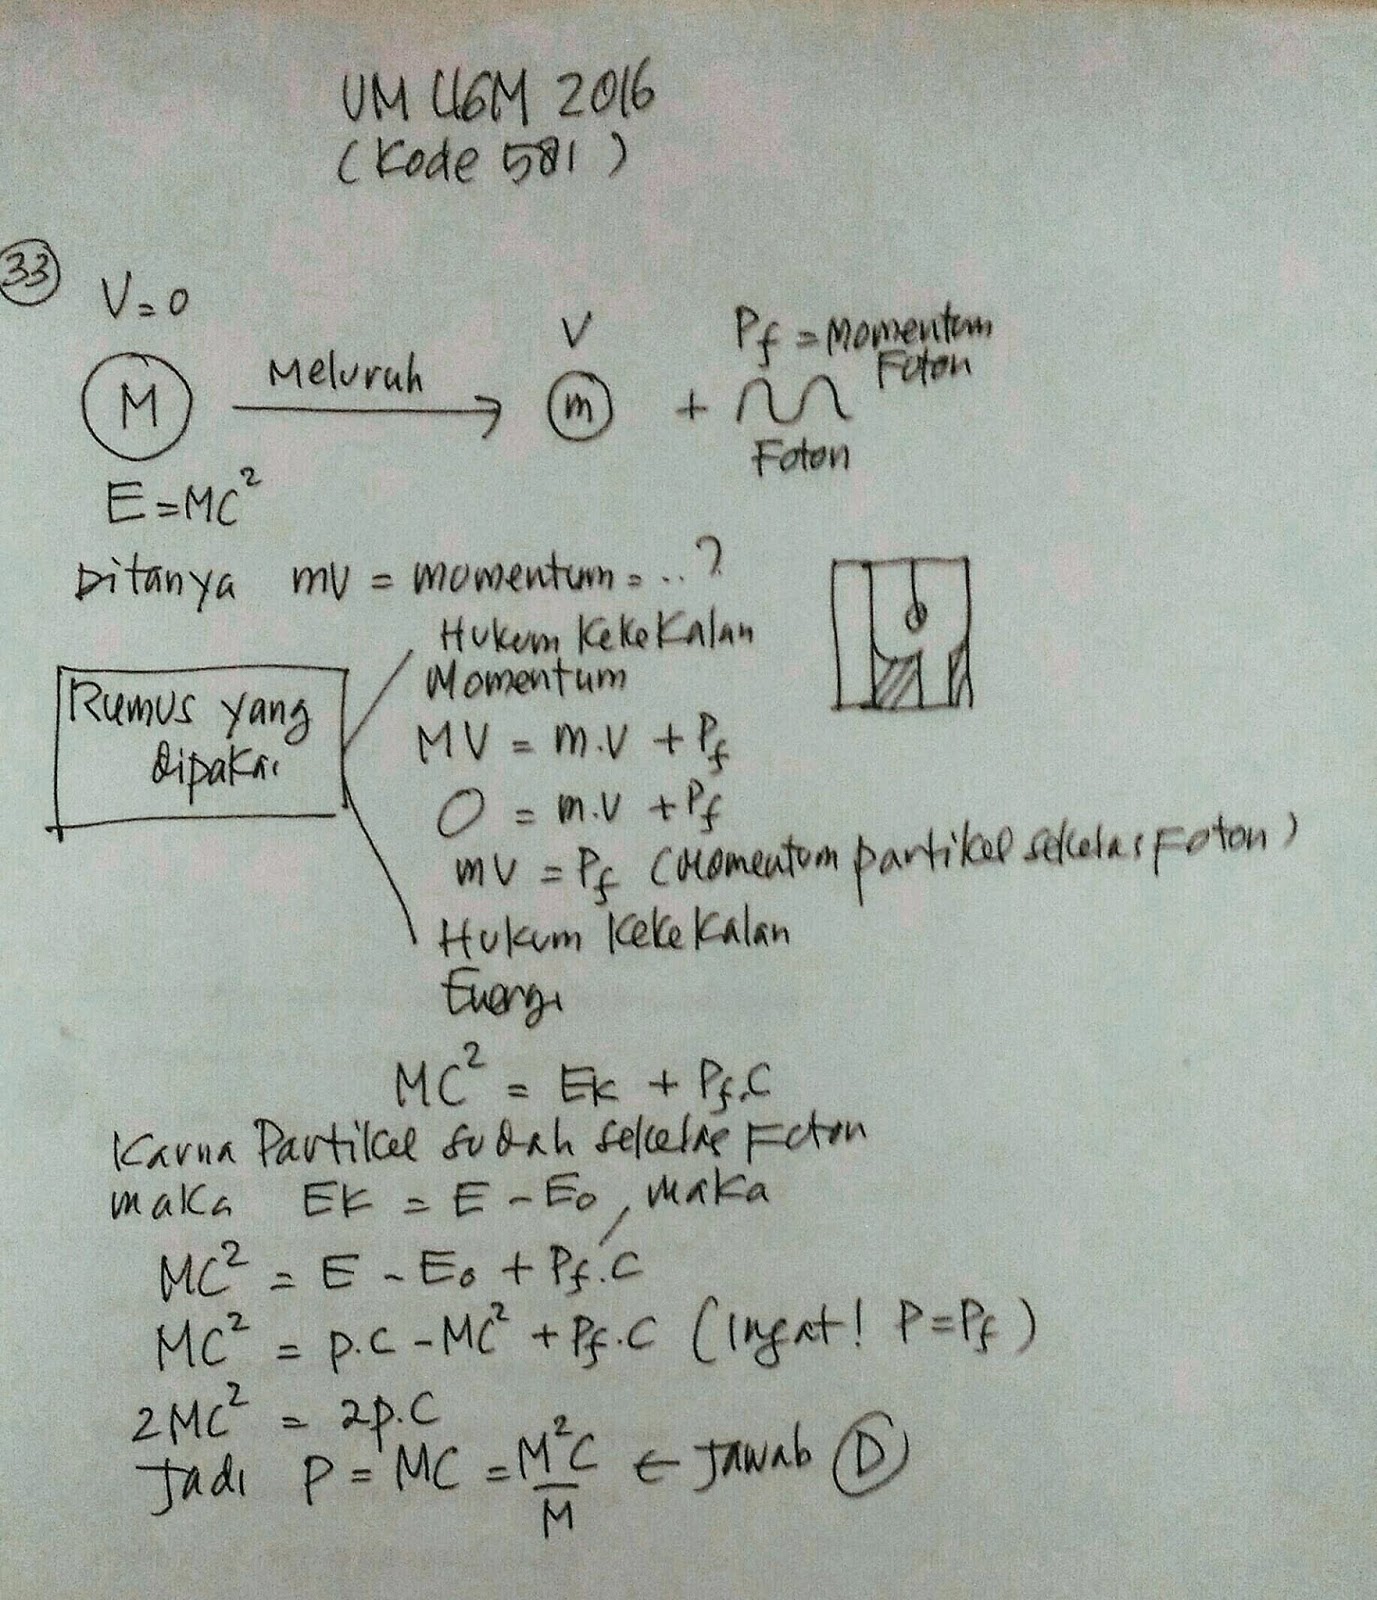 UM UGM 2016
(Kode 581)
33
V=0
M
Meluruh
V
m
+
Pf = Momentum
Foton
Foton
E=MC²
Ditanya mv = momentum = ..?
Rumus yang
dipakai
Hukum Kekekalan
Momentum
MV = m.v + Pf
0 = m.v + Pf
mv = Pf (Momentum partikel sekelas Foton)
Hukum Kekekalan
Energi
MC² = Ek + Pf.C
Karna Partikel sudah sekelas Foton
maka EK = E - Eo, maka
MC² = E - Eo + Pf.C
MC² = p.c - MC² + Pf.C (Ingat! P=Pf)
2MC² = 2p.C
Jadi P = MC = M²C/M ← Jawab D